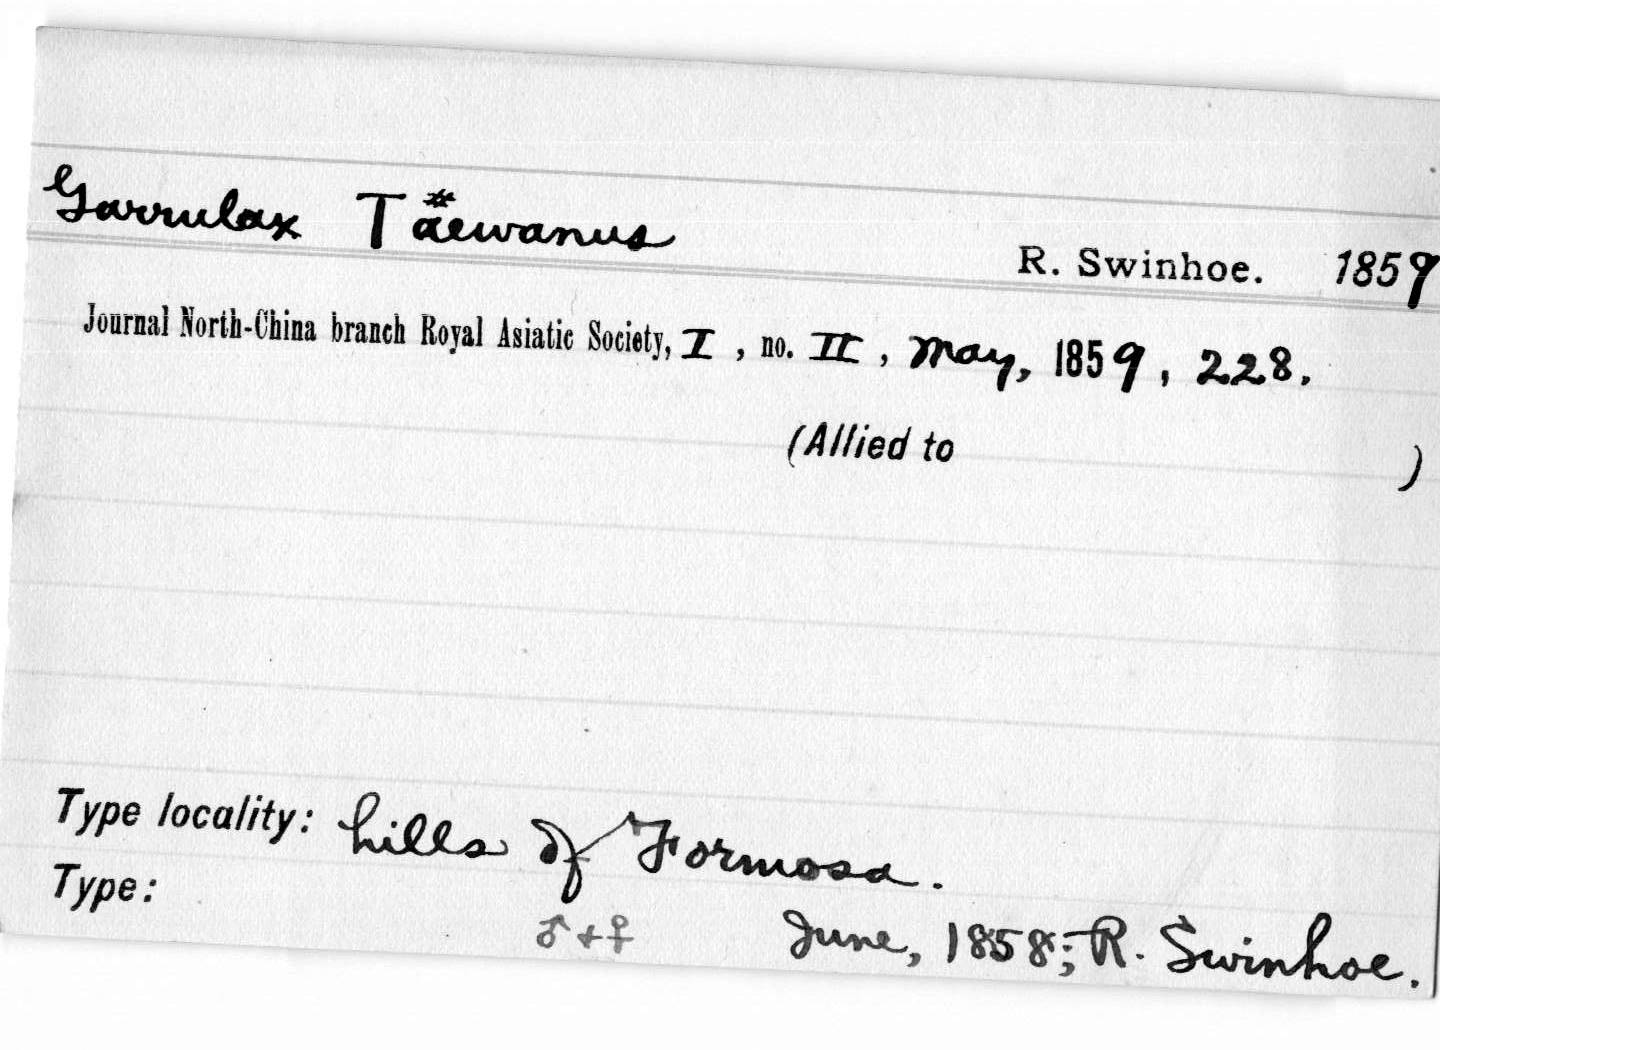 Garrulax Täewanus
R. Swinhoe. 1859
Journal North-China branch Royal Asiatic Society, I, no. II, May, 1859, 228.
(Allied to )
Type locality: hills of Formosa.
Type:
♂ + ♀ June, 1858; R. Swinhoe.